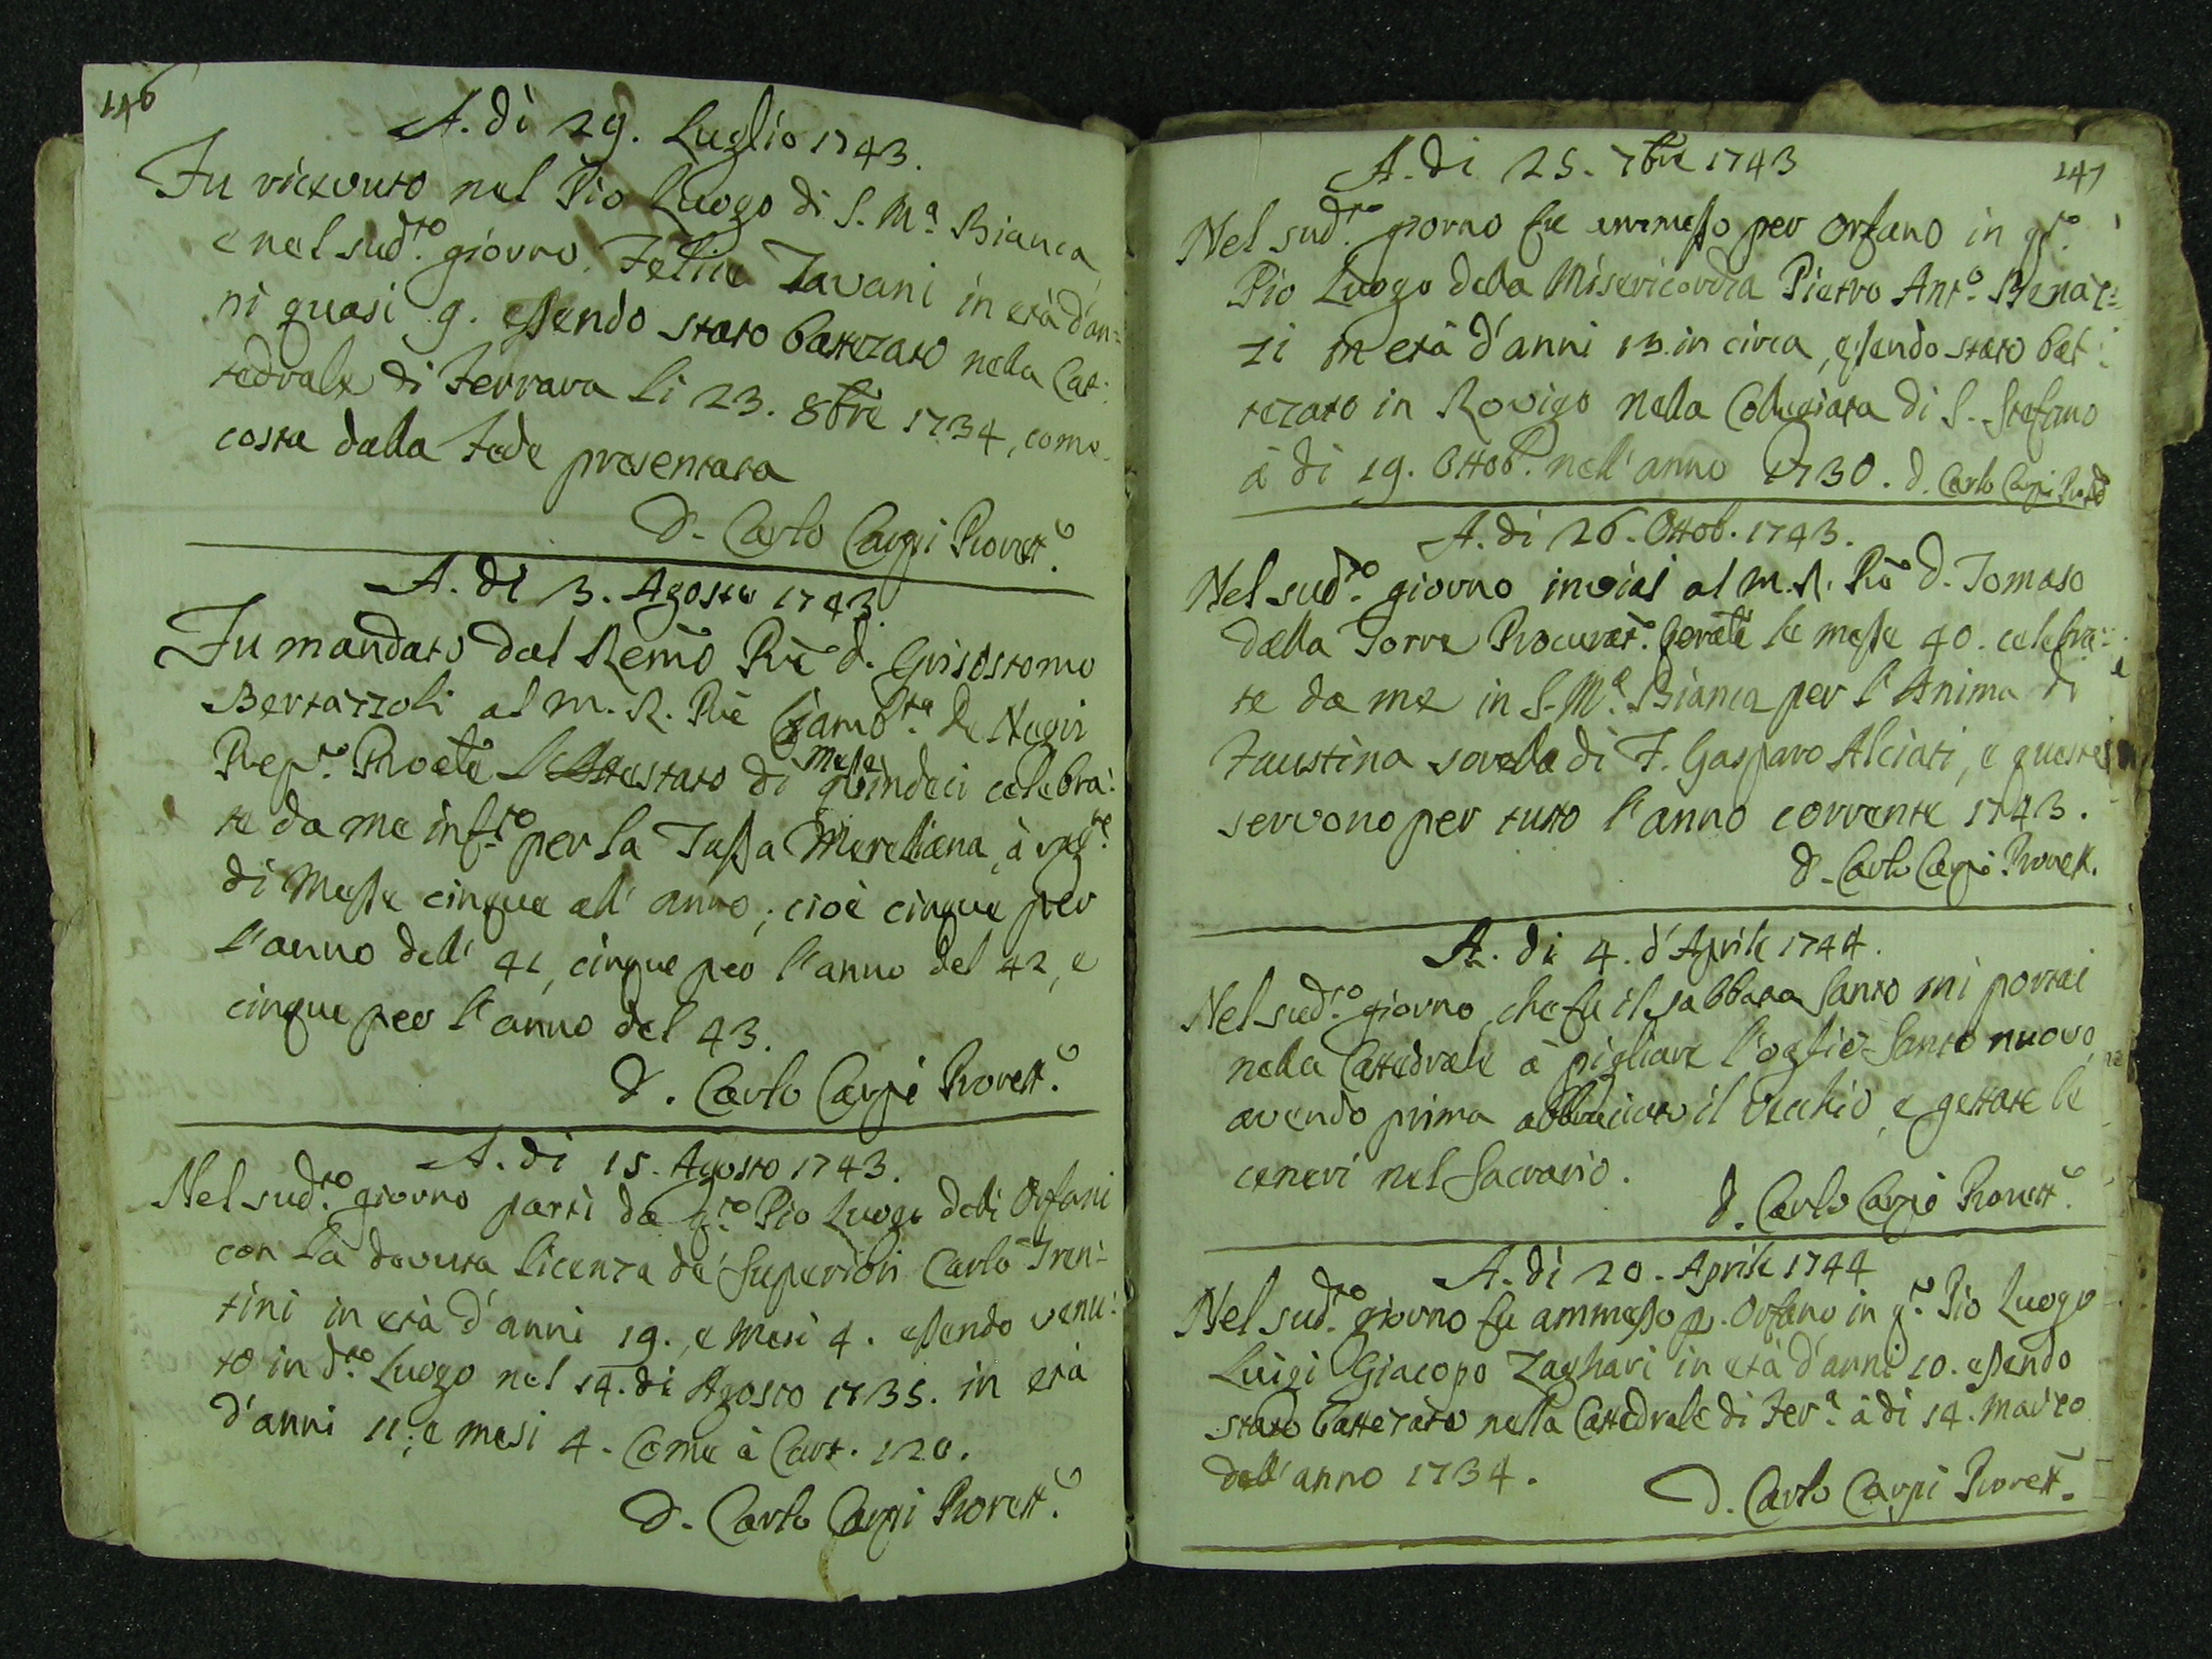 146
A. dì 29. Luglio 1743.
Fu ricevuto nel Pio Luogo di S. M.ª Bianca
e nel sud.to giorno Felice Tavani in età d'an=
ni quasi 9. essendo stato battezato nella Cat:
tedrale di Ferrara li 23. 8bre 1734, come
costa dalla Fede presentata
D. Carlo Carpi Rorett.º
A. dì 3. Agosto 1743.
Fu mandato dal Remo Pre D. Grisostomo
Bertazzoli al M. R. Pre Giamb.ta De Negri
l'Attestato di Messe quindeci celebra:
te da me inf.to per la Tassa Mereliana, à
di Messe cinque all' anno; cioè cinque per
l'anno dell' 41, cinque per l'anno del 42, e
cinque per l'anno del 43.
D. Carlo Carpi Rorett.º
A. dì 15. Agosto 1743.
Nel sud.to giorno partì da q.to Pio Luogo delli Orfani
con la dovuta licenza de' Superiori Carlo Tren:
tini in età d'anni 19., e Mesi 4. essendo venu:
to in d.to Luogo nel 14. di Agosto 1735. in età
d'anni 11; e mesi 4. Come à Cart. 120.
D. Carlo Carpi Rorett.º
147
A. di 25. 7bre 1743
Nel sud.to giorno fu ammesso per Orfano in q.to
Pio Luogo della Misericordia Pietro Ant.º Benaz:
zi in età d'anni 13. in circa, essendo stato bat:
tezato in Rovigo nella Collegiata di S. Stefano
à di 19. Ottob. nell' anno 1730. D. Carlo Carpi
A. di 26. Ottob. 1743.
Nel sud.to giorno inviai al M. R. Pre D. Tomaso
dalla Torre Procurat. Gerale le messe 40. celebra:
te da me in S. M.ª Bianca per l'Anima di
Faustina sorella di F. Gasparo Alciati, e queste
servono per tutto l'anno corrente 1743.
D. Carlo Carpi Rorett.
A. di 4. d'Aprile 1744.
Nel sud.to giorno, che fu il sabbata Santo mi portai
nella Cattedrale à pigliare l'oglio Santo nuovo,
avendo prima abbruciato il vecchio, e gettate le
ceneri nel Sacrario.
D. Carlo Carpi Rorett.º
A. di 20. Aprile 1744
Nel sud.to giorno fu ammesso p. Orfano in q.to Pio Luogo
Luigi Giacopo Zaghari in età d'anni 10. essendo
stato battezato nella Cattedrale di Fer.ª à di 14. Marzo
dell' anno 1734.
D. Carlo Carpi Rorett.